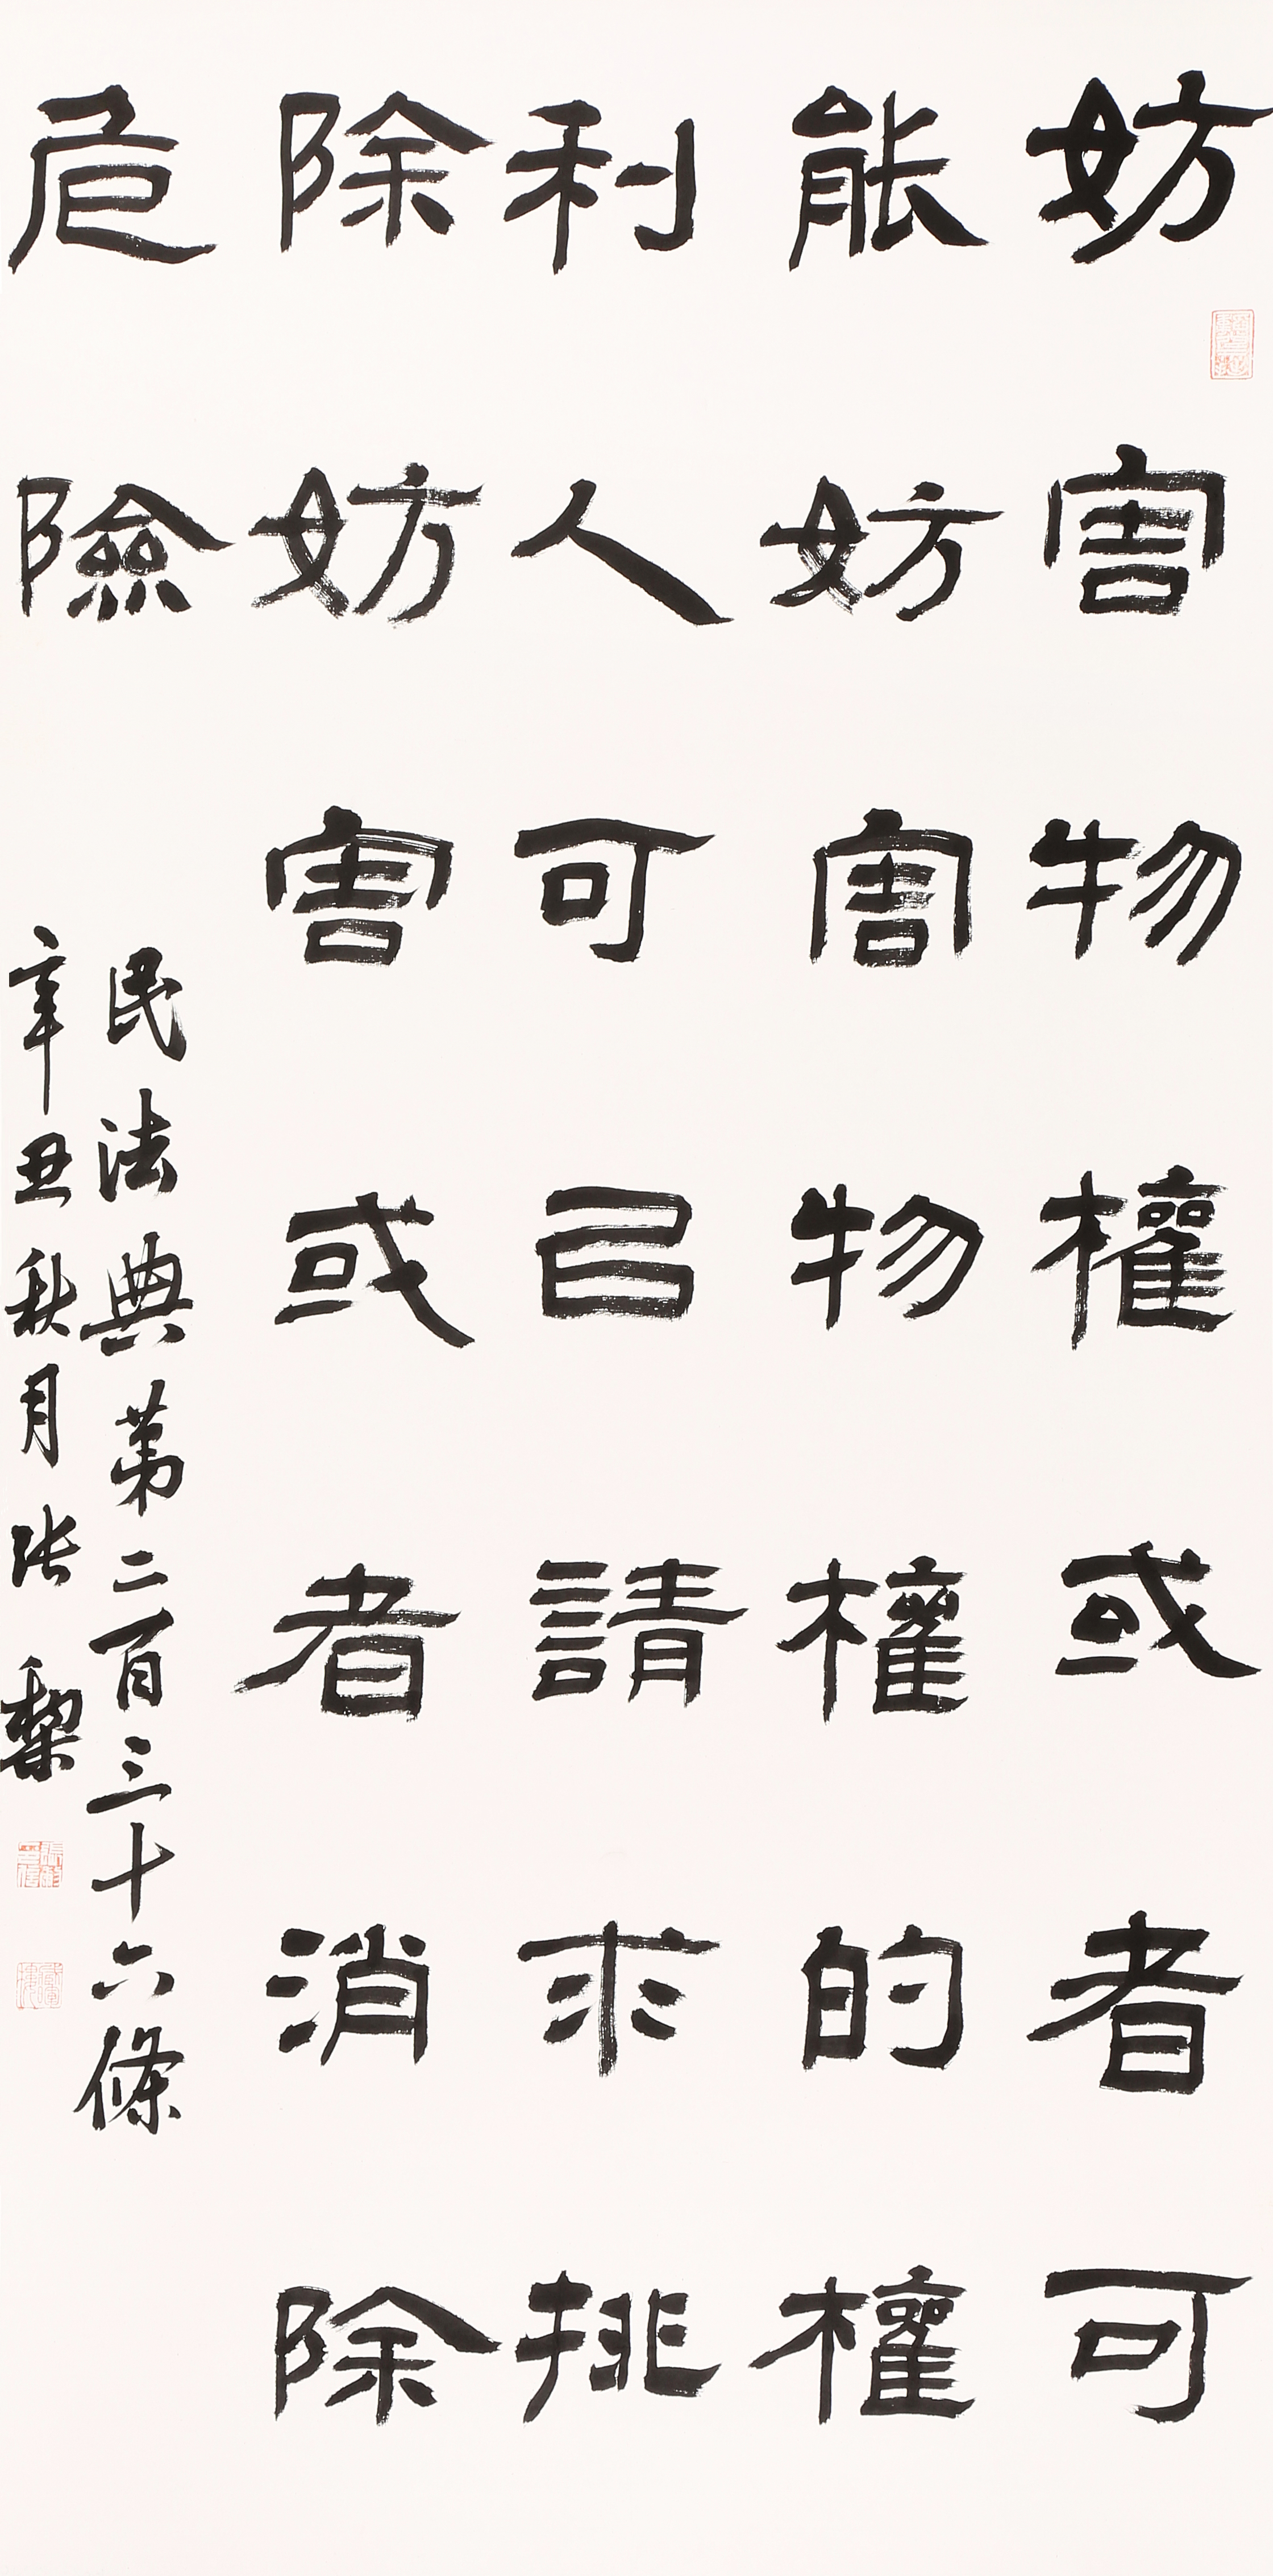 妨害物權或者可
能妨害物權的權
利人可以請求排
除妨害或者消除
危險
民法典第二百三十六條
辛丑秋月张犂